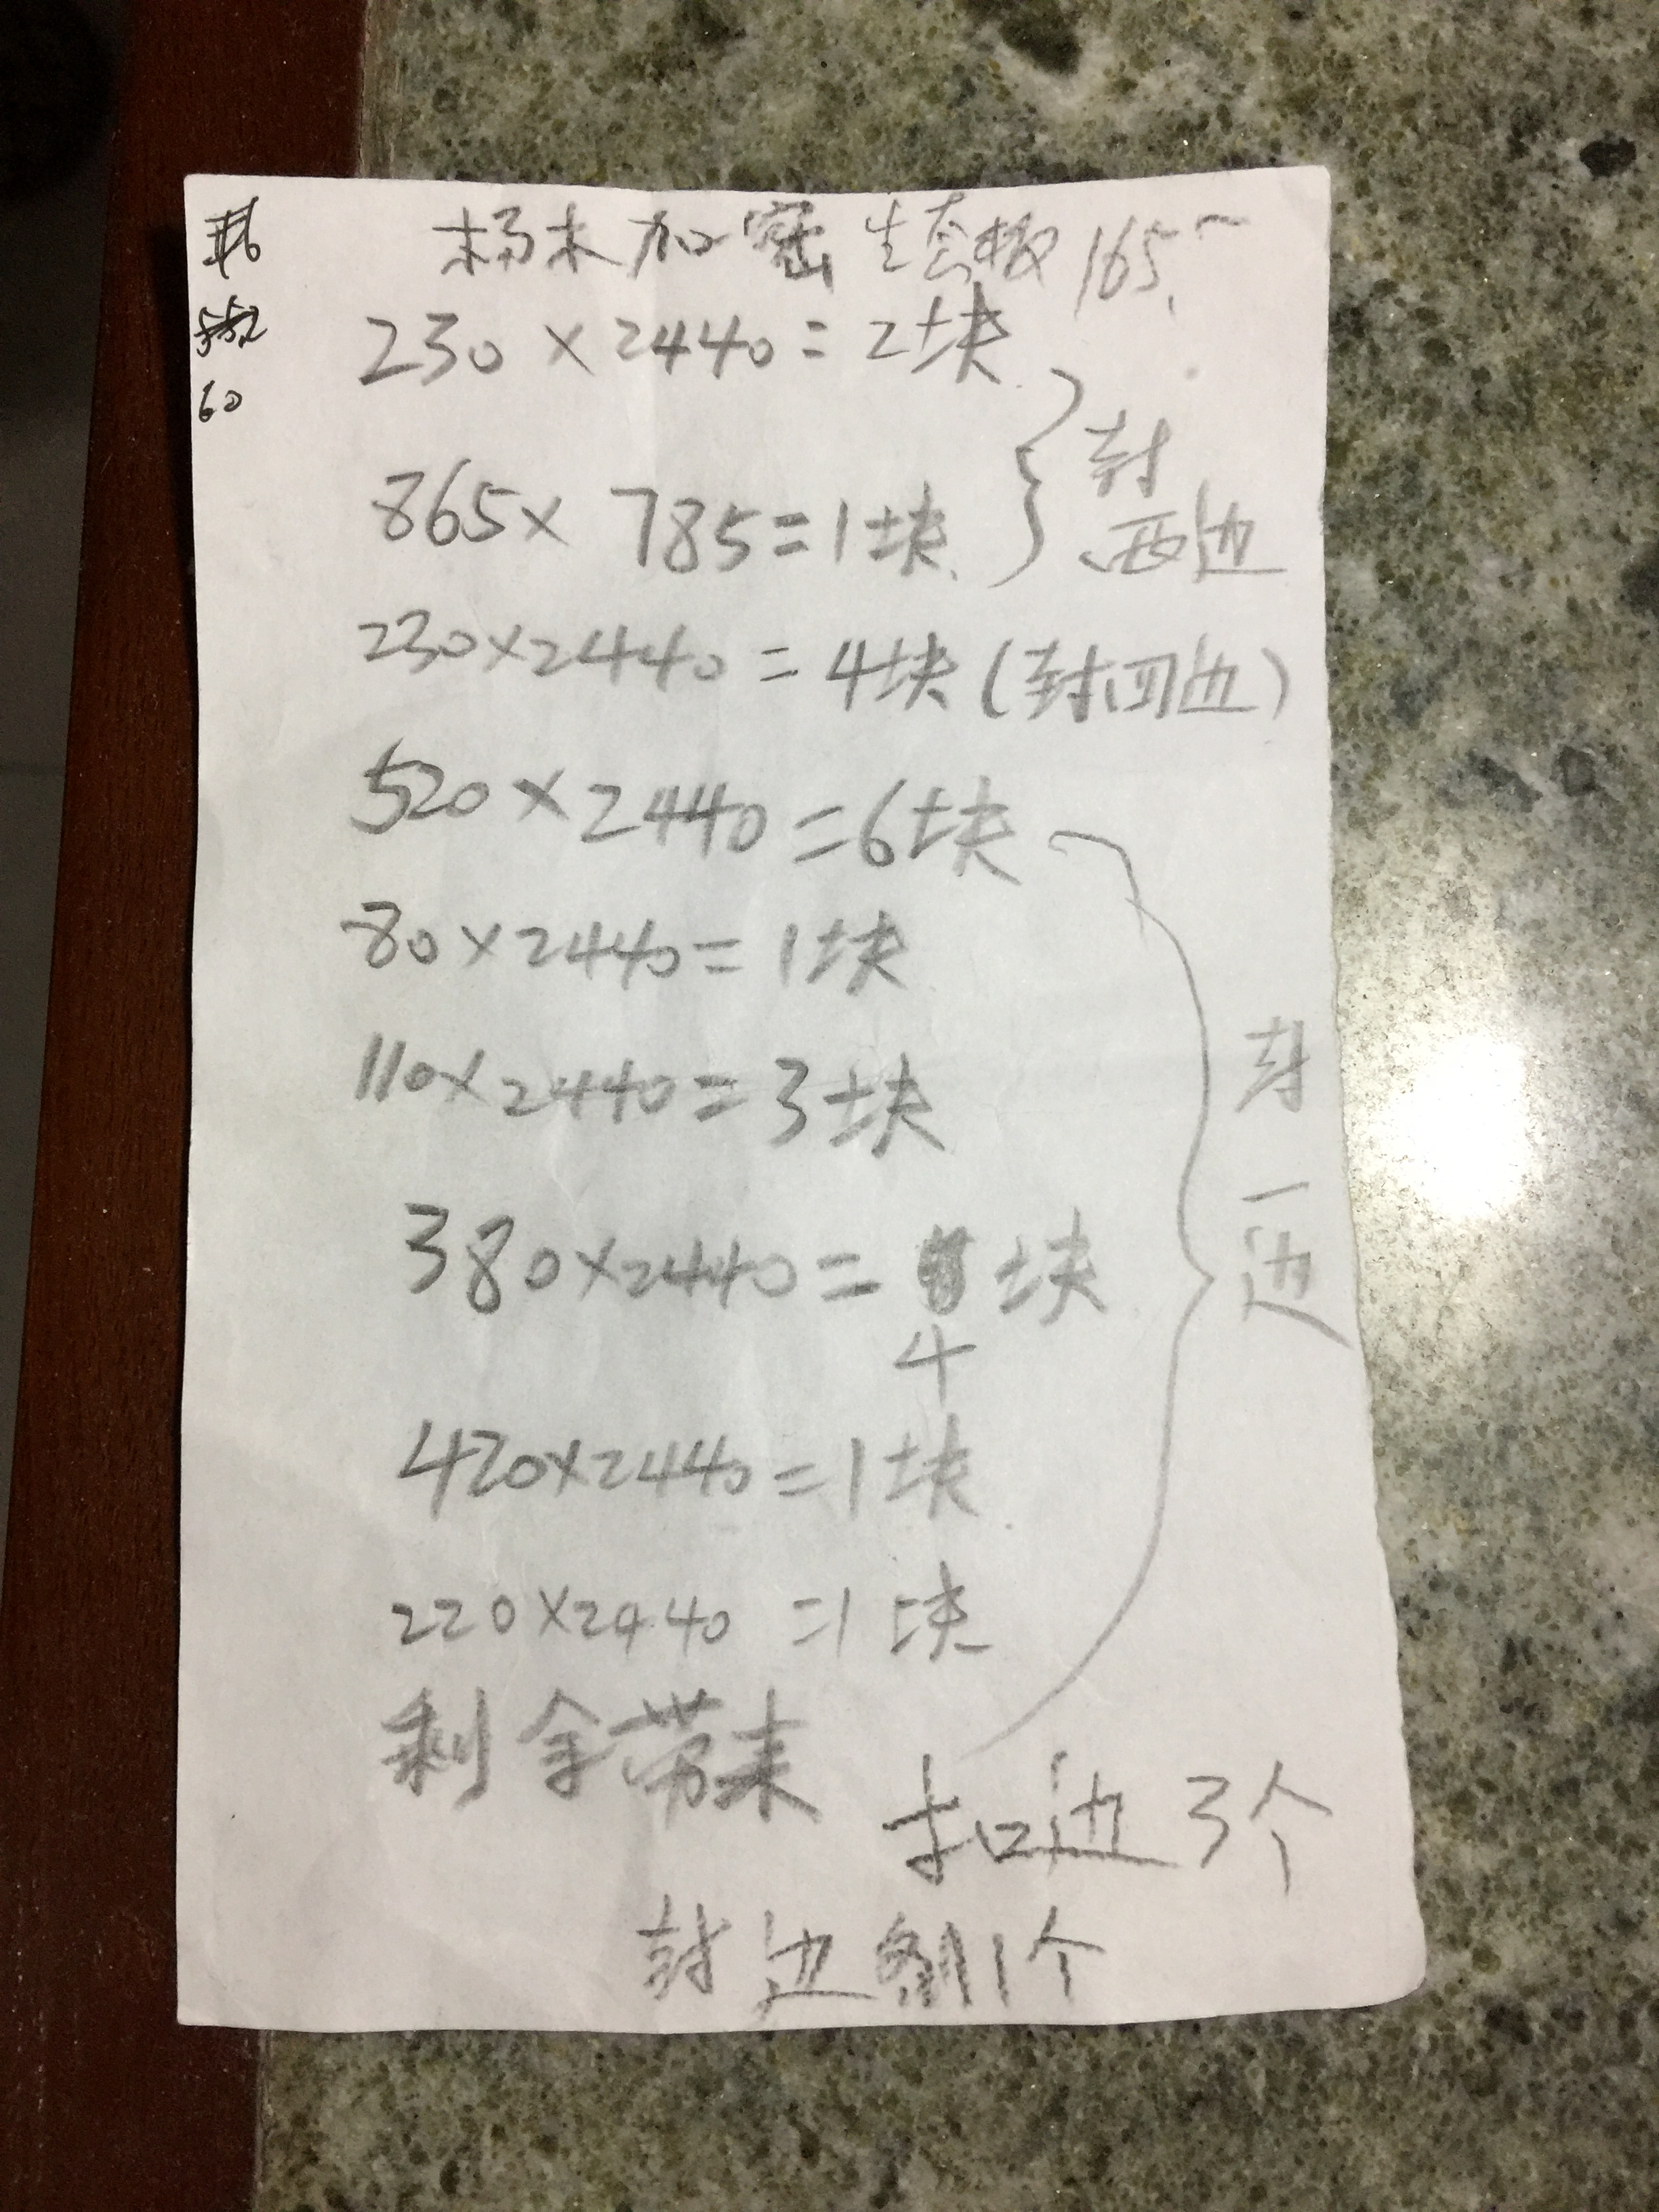 杨木加密生套板165.
230×2440=2块
865×785=1块
封
两边
230×2440=4块(封四边)
520×2440=6块
80×2440=1块
110×2440=3块
380×2440=块
4
420×2440=1块
220×2440=1块
封一边
剩余带来
扣边3个
封边1个
60